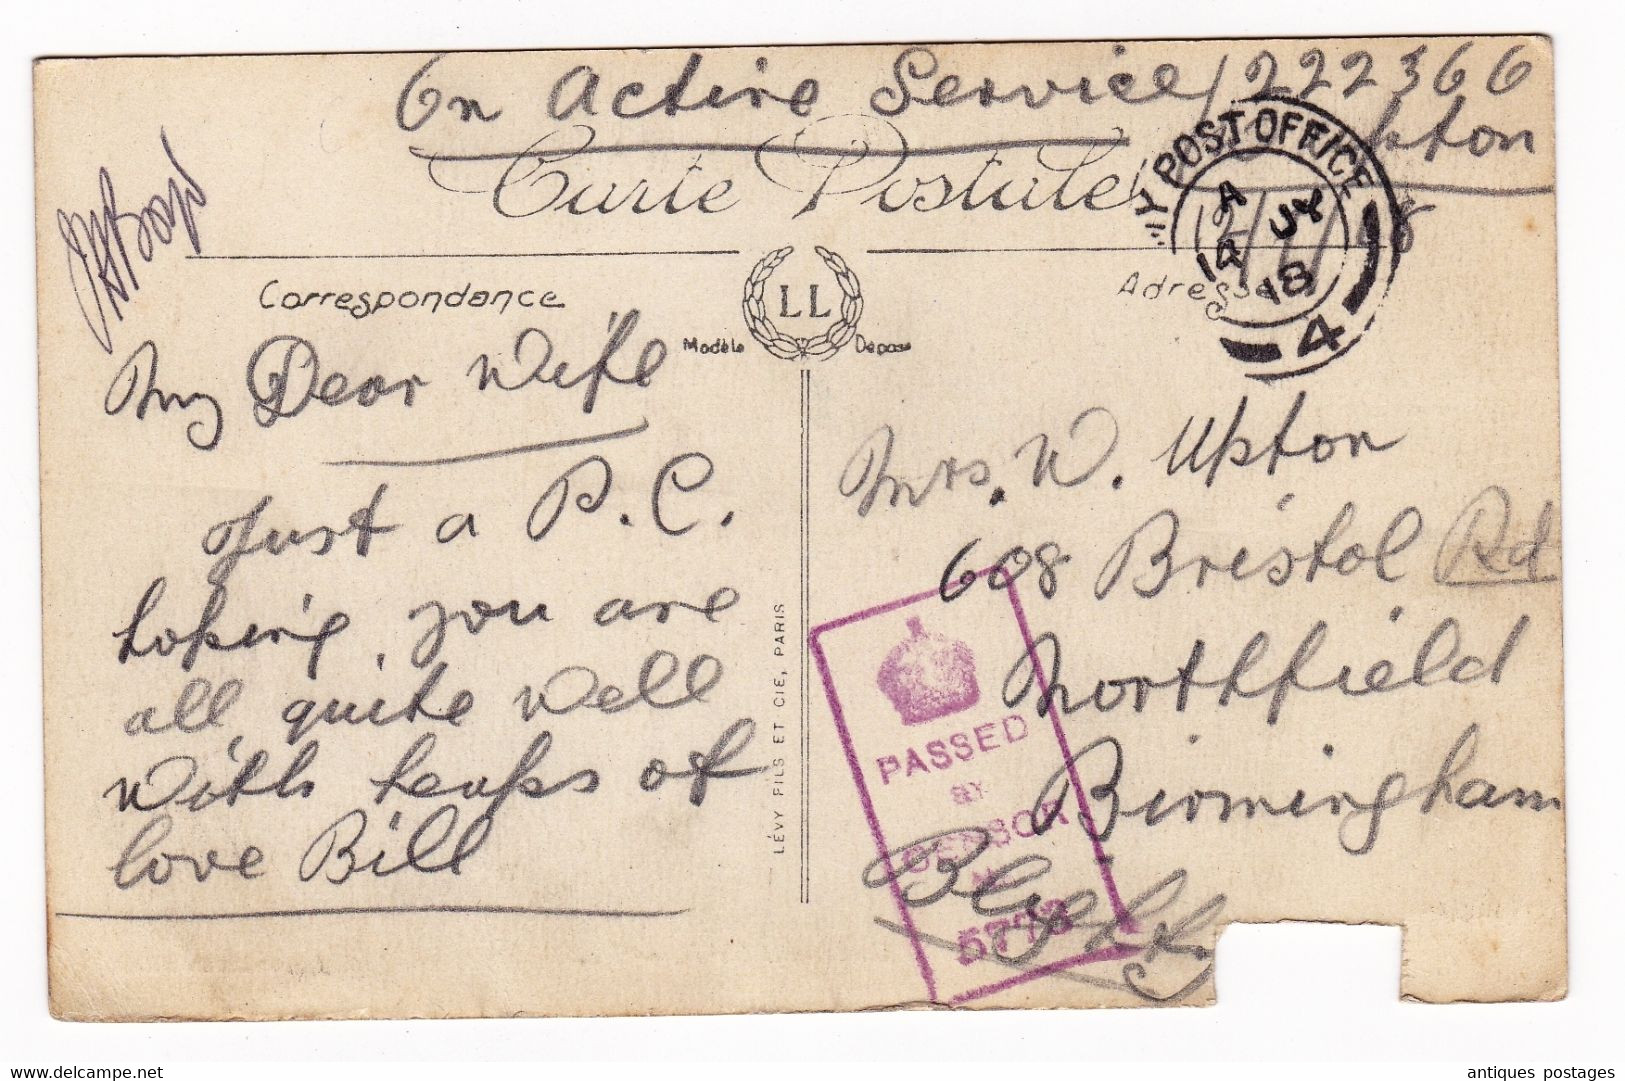 On Active Service / 222366
Carte Postale
pton
POST OFFICE
A
14 JY
18
4
12/7/18
Correspondance
LL
Modèle Déposé
Adresse
My Dear Wife
Just a P.C.
hoping you are
all quite well
With heaps of
love Bill
LÉVY FILS ET CIE, PARIS
Mrs. W. Upton
608 Bristol Rd
Northfield
Birmingham
Blighty
PASSED
BY
CENSOR
No
5773
antiques postages
www.delcampe.net